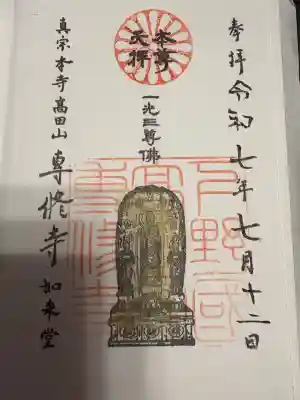 奉拝 令和七年七月十二日
本尊
天拝
一光三尊佛
下野國
高
專修寺
真宗本寺高田山
專修寺 如来堂